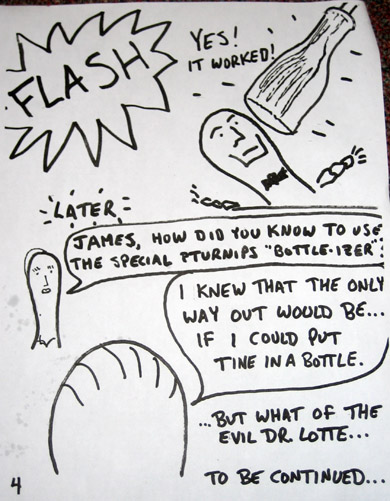 FLASH
YES!
IT WORKED!
LATER
JAMES, HOW DID YOU KNOW TO USE
THE SPECIAL PTURNIPS "BOTTLE-IZER"?
I KNEW THAT THE ONLY
WAY OUT WOULD BE...
IF I COULD PUT
TINE IN A BOTTLE.
...BUT WHAT OF THE
EVIL DR. LOTTE...
TO BE CONTINUED...
4